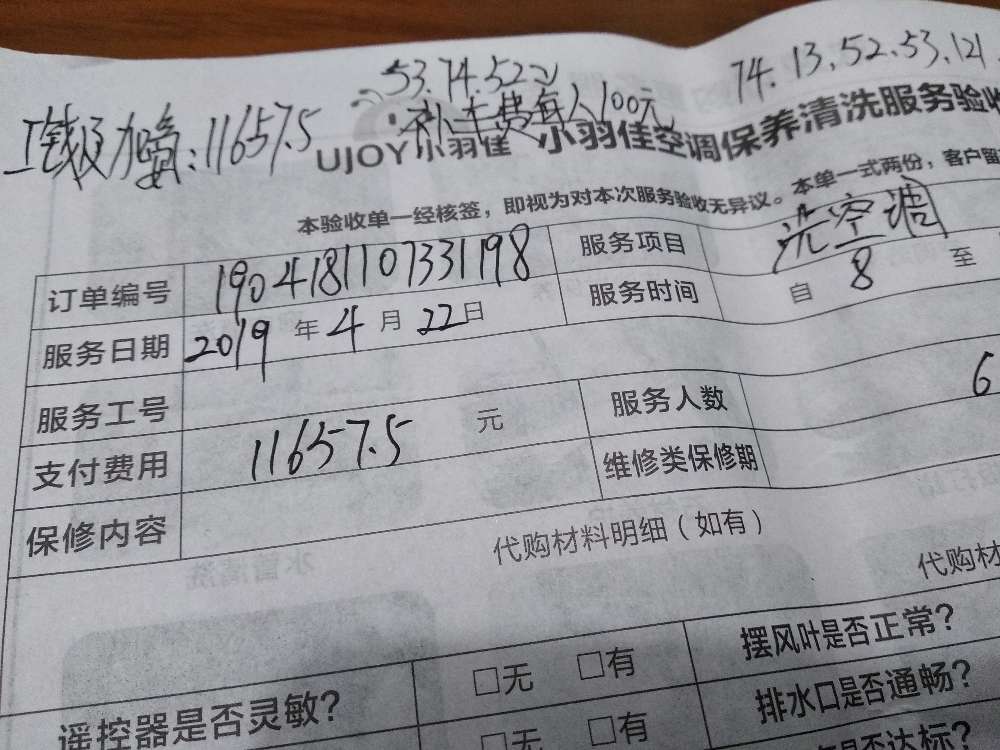 53.74.52
74.13.52.53.121
补车费每人100元
工钱及加氟:11657.5
UJOY小羽佳 小羽佳空调保养清洗服务验收
本验收单一经核签,即视为对本次服务验收无异议。本单一式两份,客户留
订单编号 190418110733198 服务项目 洗空调
服务日期 2019年4月22日 服务时间 自 8 至
服务工号 服务人数 6
支付费用 11657.5 元 维修类保修期
保修内容
代购材料明细(如有)
代购材
遥控器是否灵敏? □无 □有 摆风叶是否正常?
□无 □有 排水口是否通畅?
是否达标?